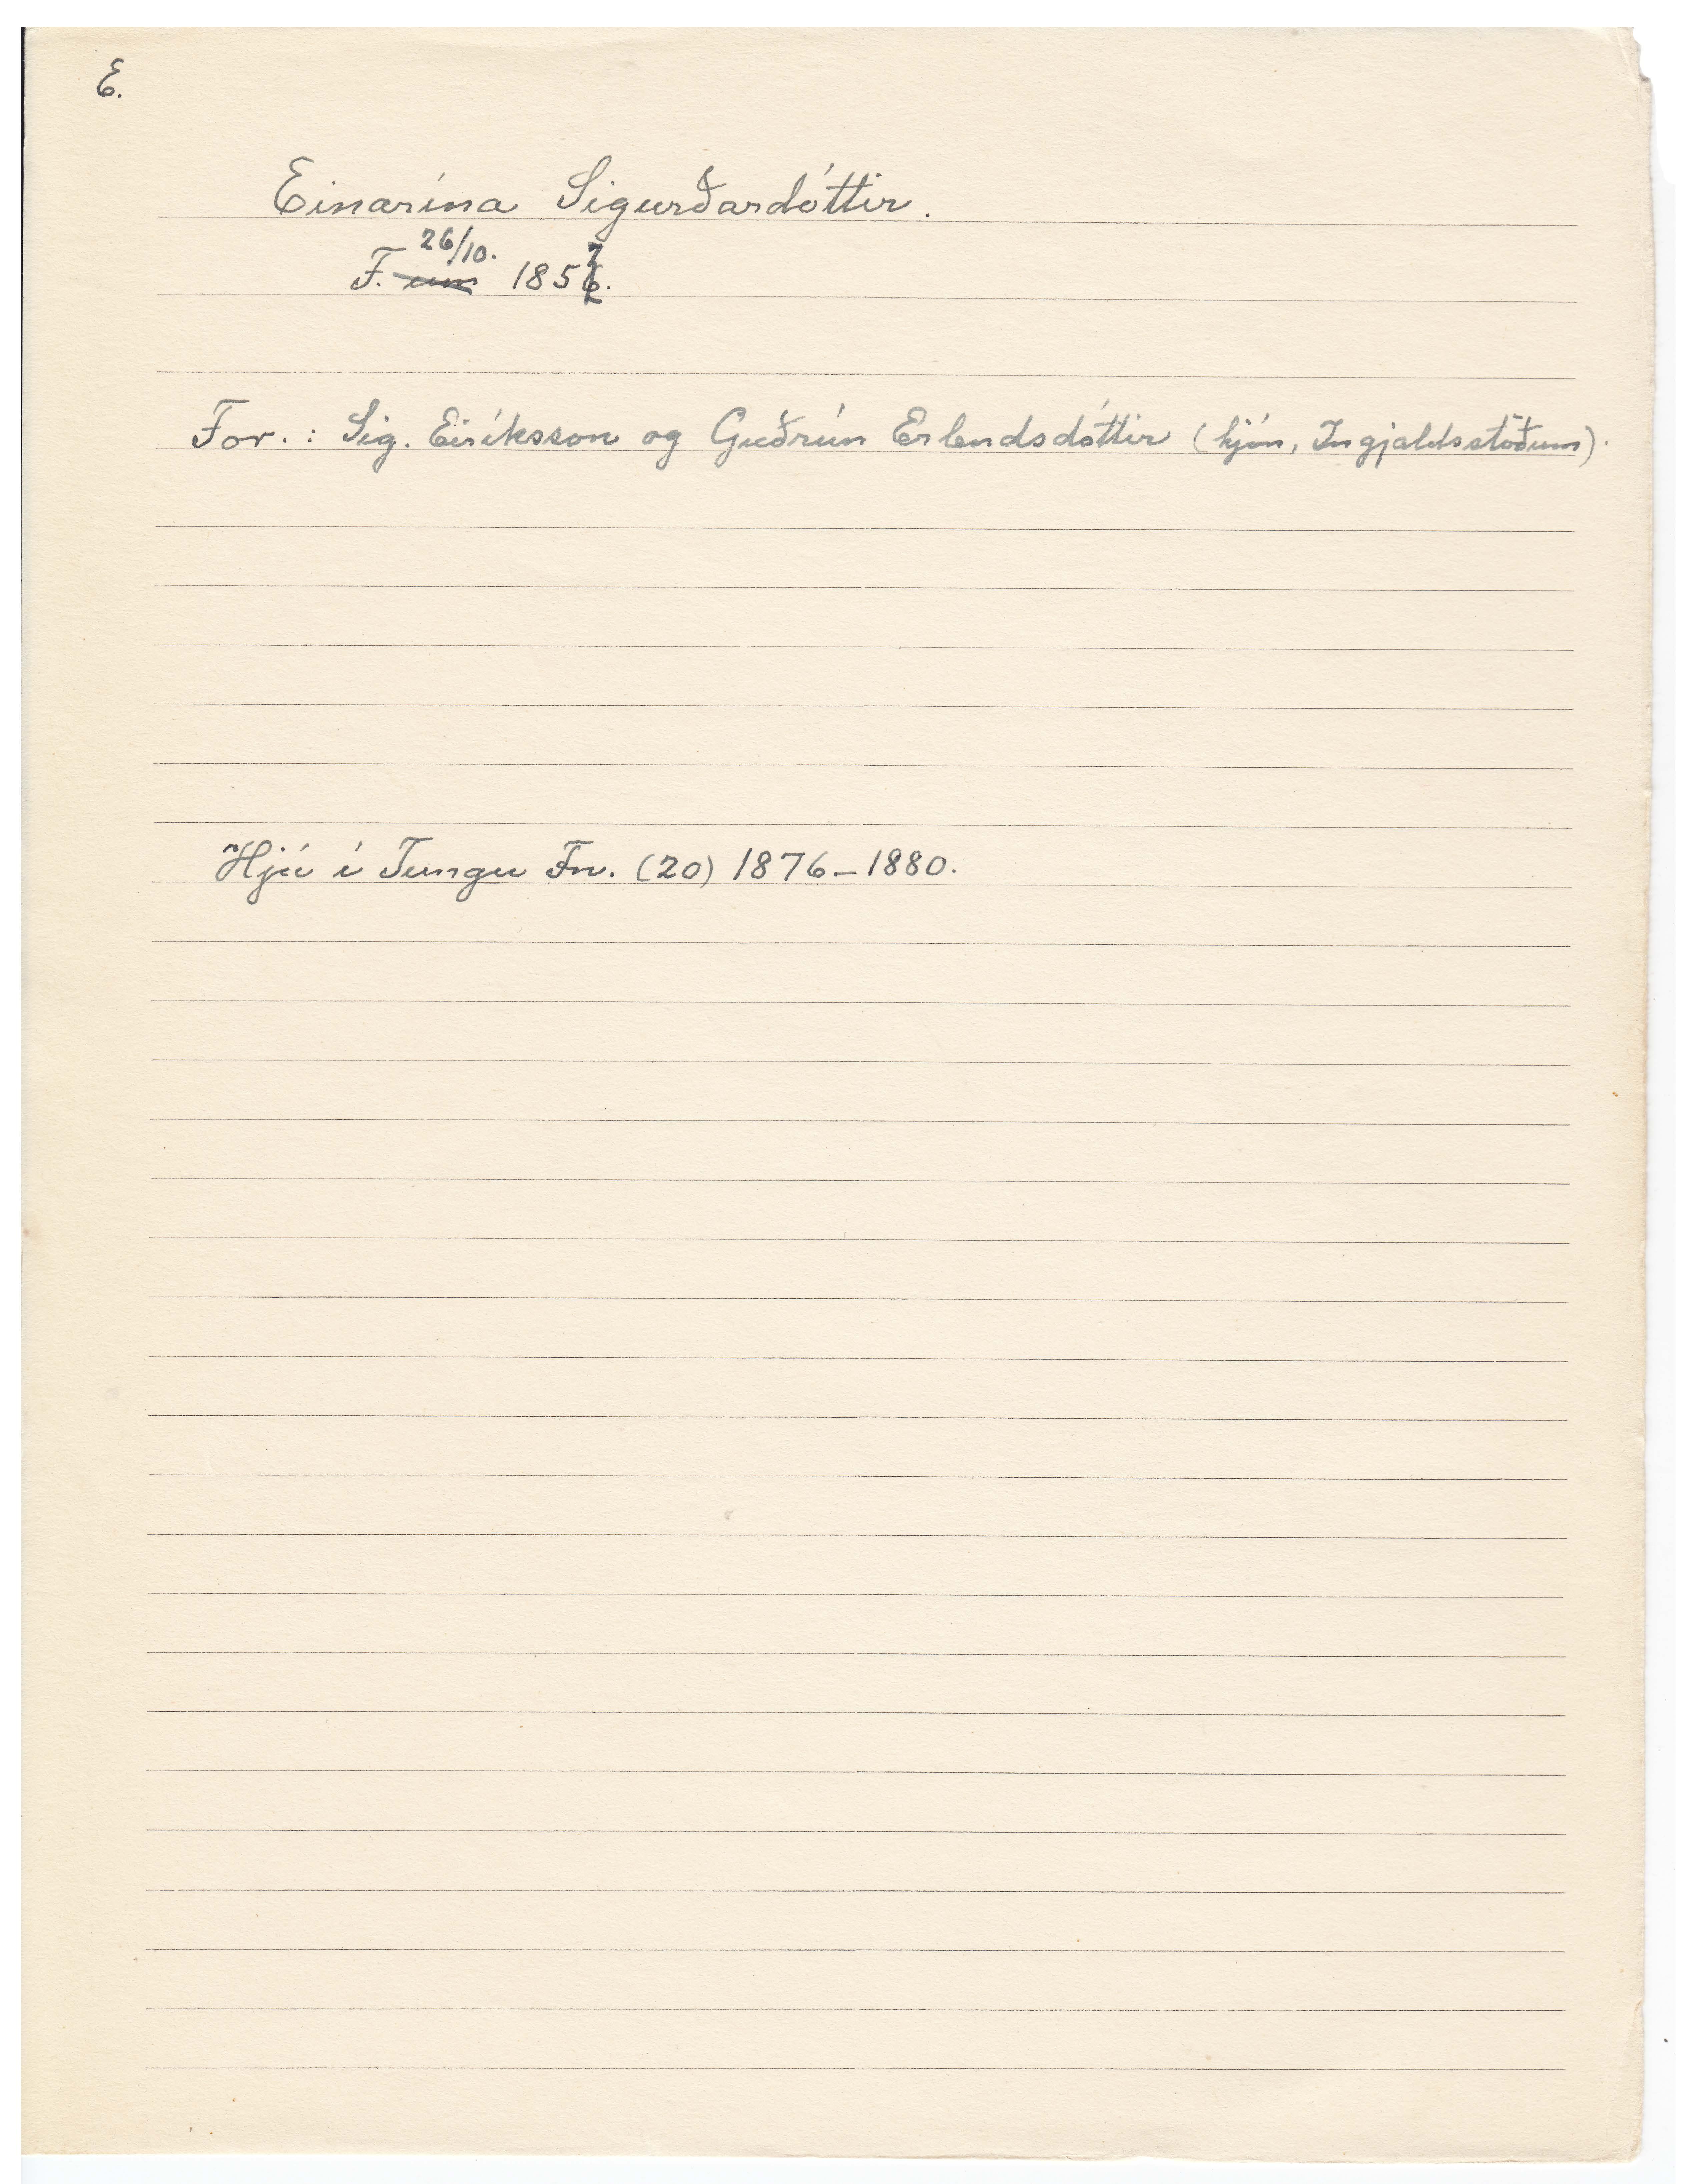 E.
Einarína Sigurðardóttir.
26/10.
F. um 1857.
For.: Sig. Eiríksson og Guðrún Erlendsdóttir (hjón, Ingjaldsstöðum).
Hjú í Tungu Fn. (20) 1876-1880.